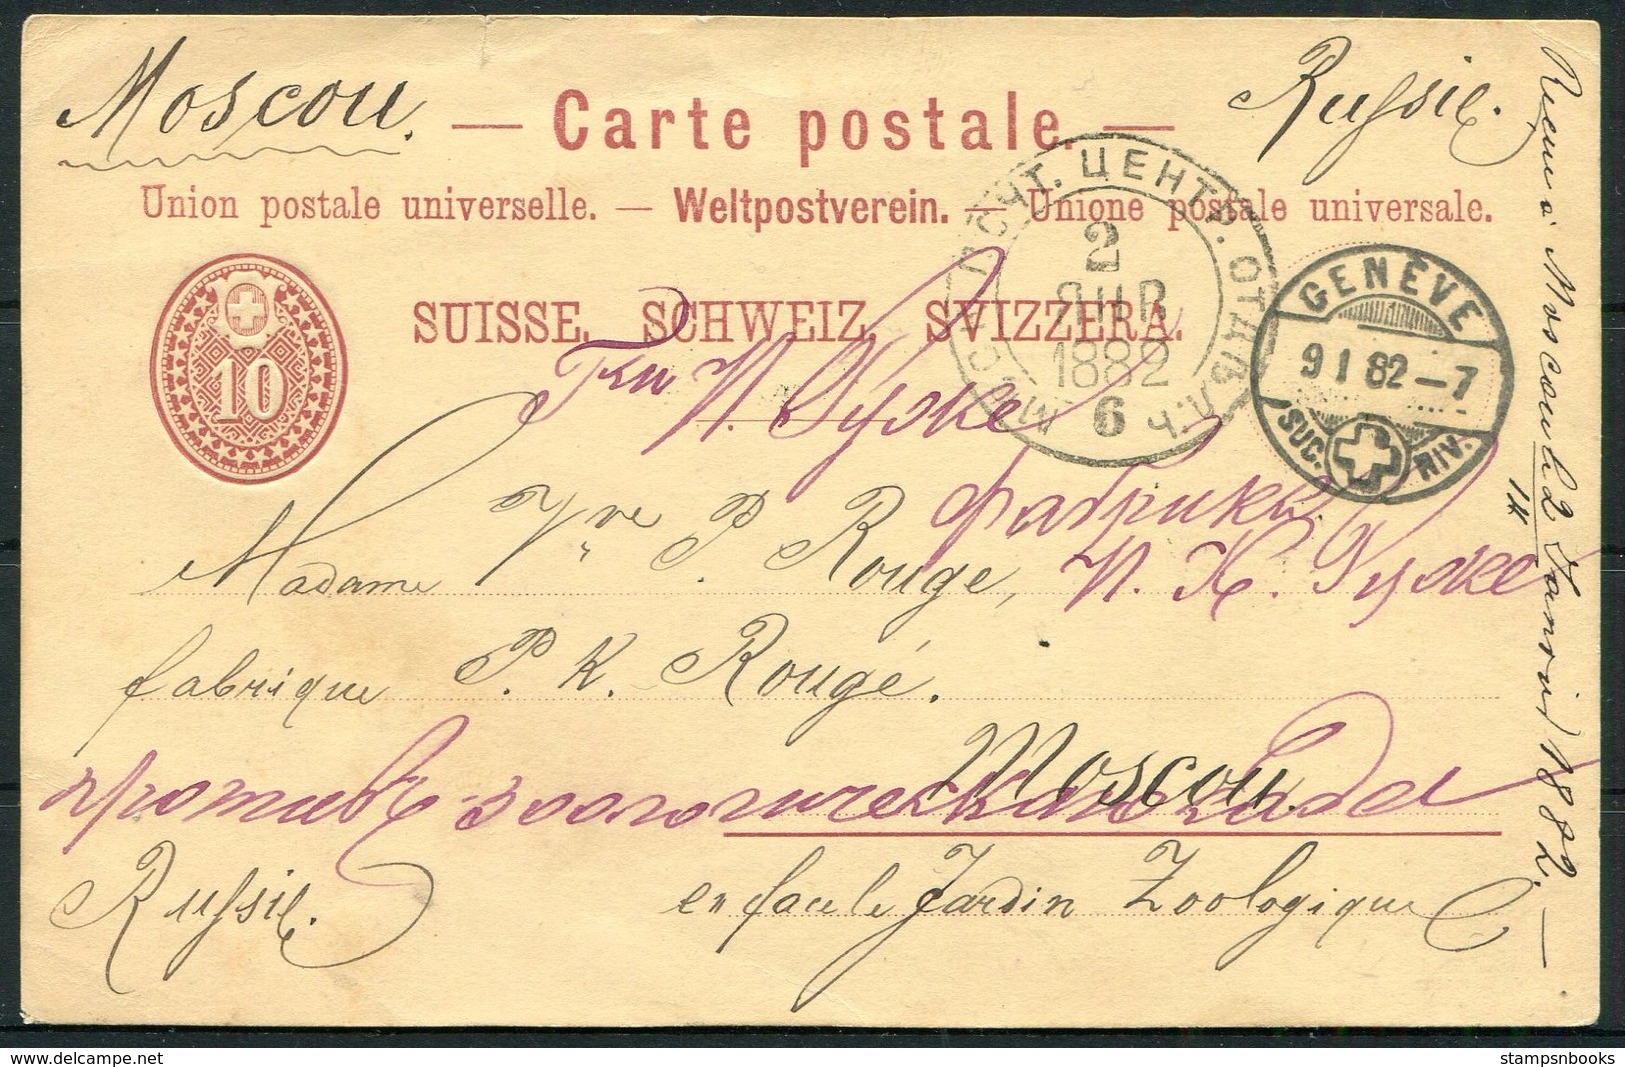 Moscou.
Russie.
— Carte postale. —
Union postale universelle. — Weltpostverein. — Unione postale universale.
10
SUISSE. SCHWEIZ. SVIZZERA.
МОСК. ПОЧТ. ЦЕНТР. ОТДѢЛ. Ч.
2
ЯНВ
1882
6
GENÈVE
9 I 82 – 7
SUC. RIV.
Madame Vve P. Rouge,
фабрика
fabrique P. K. Rougé.
Moscou.
противъ зоологическаго сада
Russie.
en face le Jardin Zoologique
Reçu à Moscou le 2/14 Janvier 1882. —
stampsnbooks